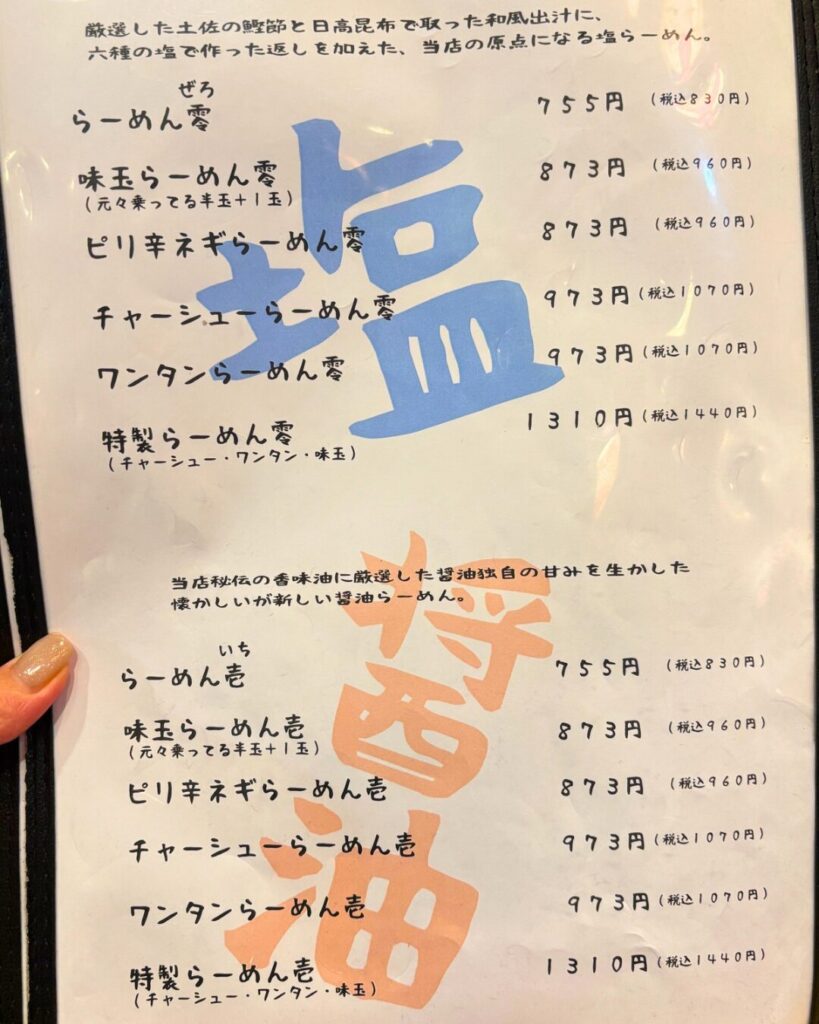 厳選した土佐の鰹節と日高昆布で取った和風出汁に、
六種の塩で作った返しを加えた、当店の原点になる塩らーめん。
塩
ぜろ
らーめん零 755円 (税込830円)
味玉らーめん零 873円 (税込960円)
(元々乗ってる半玉+1玉)
ピリ辛ネギらーめん零 873円 (税込960円)
チャーシューらーめん零 973円 (税込1070円)
ワンタンらーめん零 973円 (税込1070円)
特製らーめん零 1310円 (税込1440円)
(チャーシュー・ワンタン・味玉)
醤油
当店秘伝の香味油に厳選した醤油独自の甘みを生かした
懐かしいが新しい醤油らーめん。
いち
らーめん壱 755円 (税込830円)
味玉らーめん壱 873円 (税込960円)
(元々乗ってる半玉+1玉)
ピリ辛ネギらーめん壱 873円 (税込960円)
チャーシューらーめん壱 973円 (税込1070円)
ワンタンらーめん壱 973円 (税込1070円)
特製らーめん壱 1310円 (税込1440円)
(チャーシュー・ワンタン・味玉)